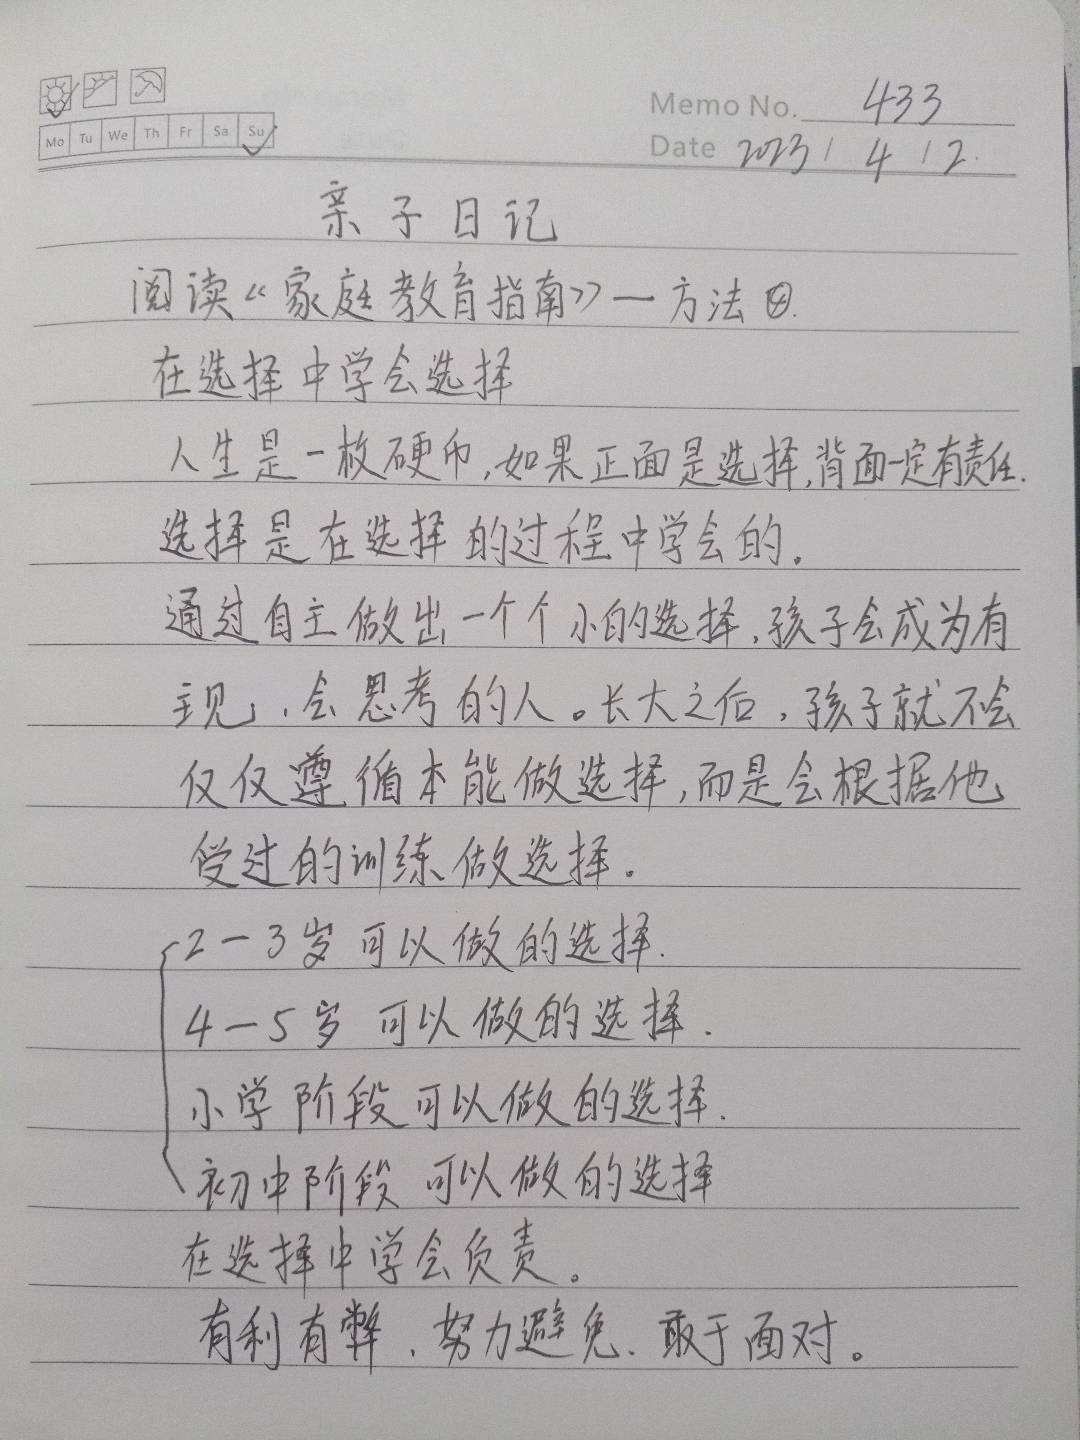 Memo No. 433
Mo Tu We Th Fr Sa Su
Date 2023 / 4 / 2.
亲子日记
阅读《家庭教育指南》—方法④.
在选择中学会选择
人生是一枚硬币,如果正面是选择,背面一定有责任.
选择是在选择的过程中学会的。
通过自主做出一个个小的选择,孩子会成为有
主见、会思考的人。长大之后,孩子就不会
仅仅遵循本能做选择,而是会根据他
受过的训练做选择。
2—3岁可以做的选择.
4—5岁可以做的选择.
小学阶段可以做的选择.
初中阶段可以做的选择
在选择中学会负责。
有利有弊、努力避免、敢于面对。